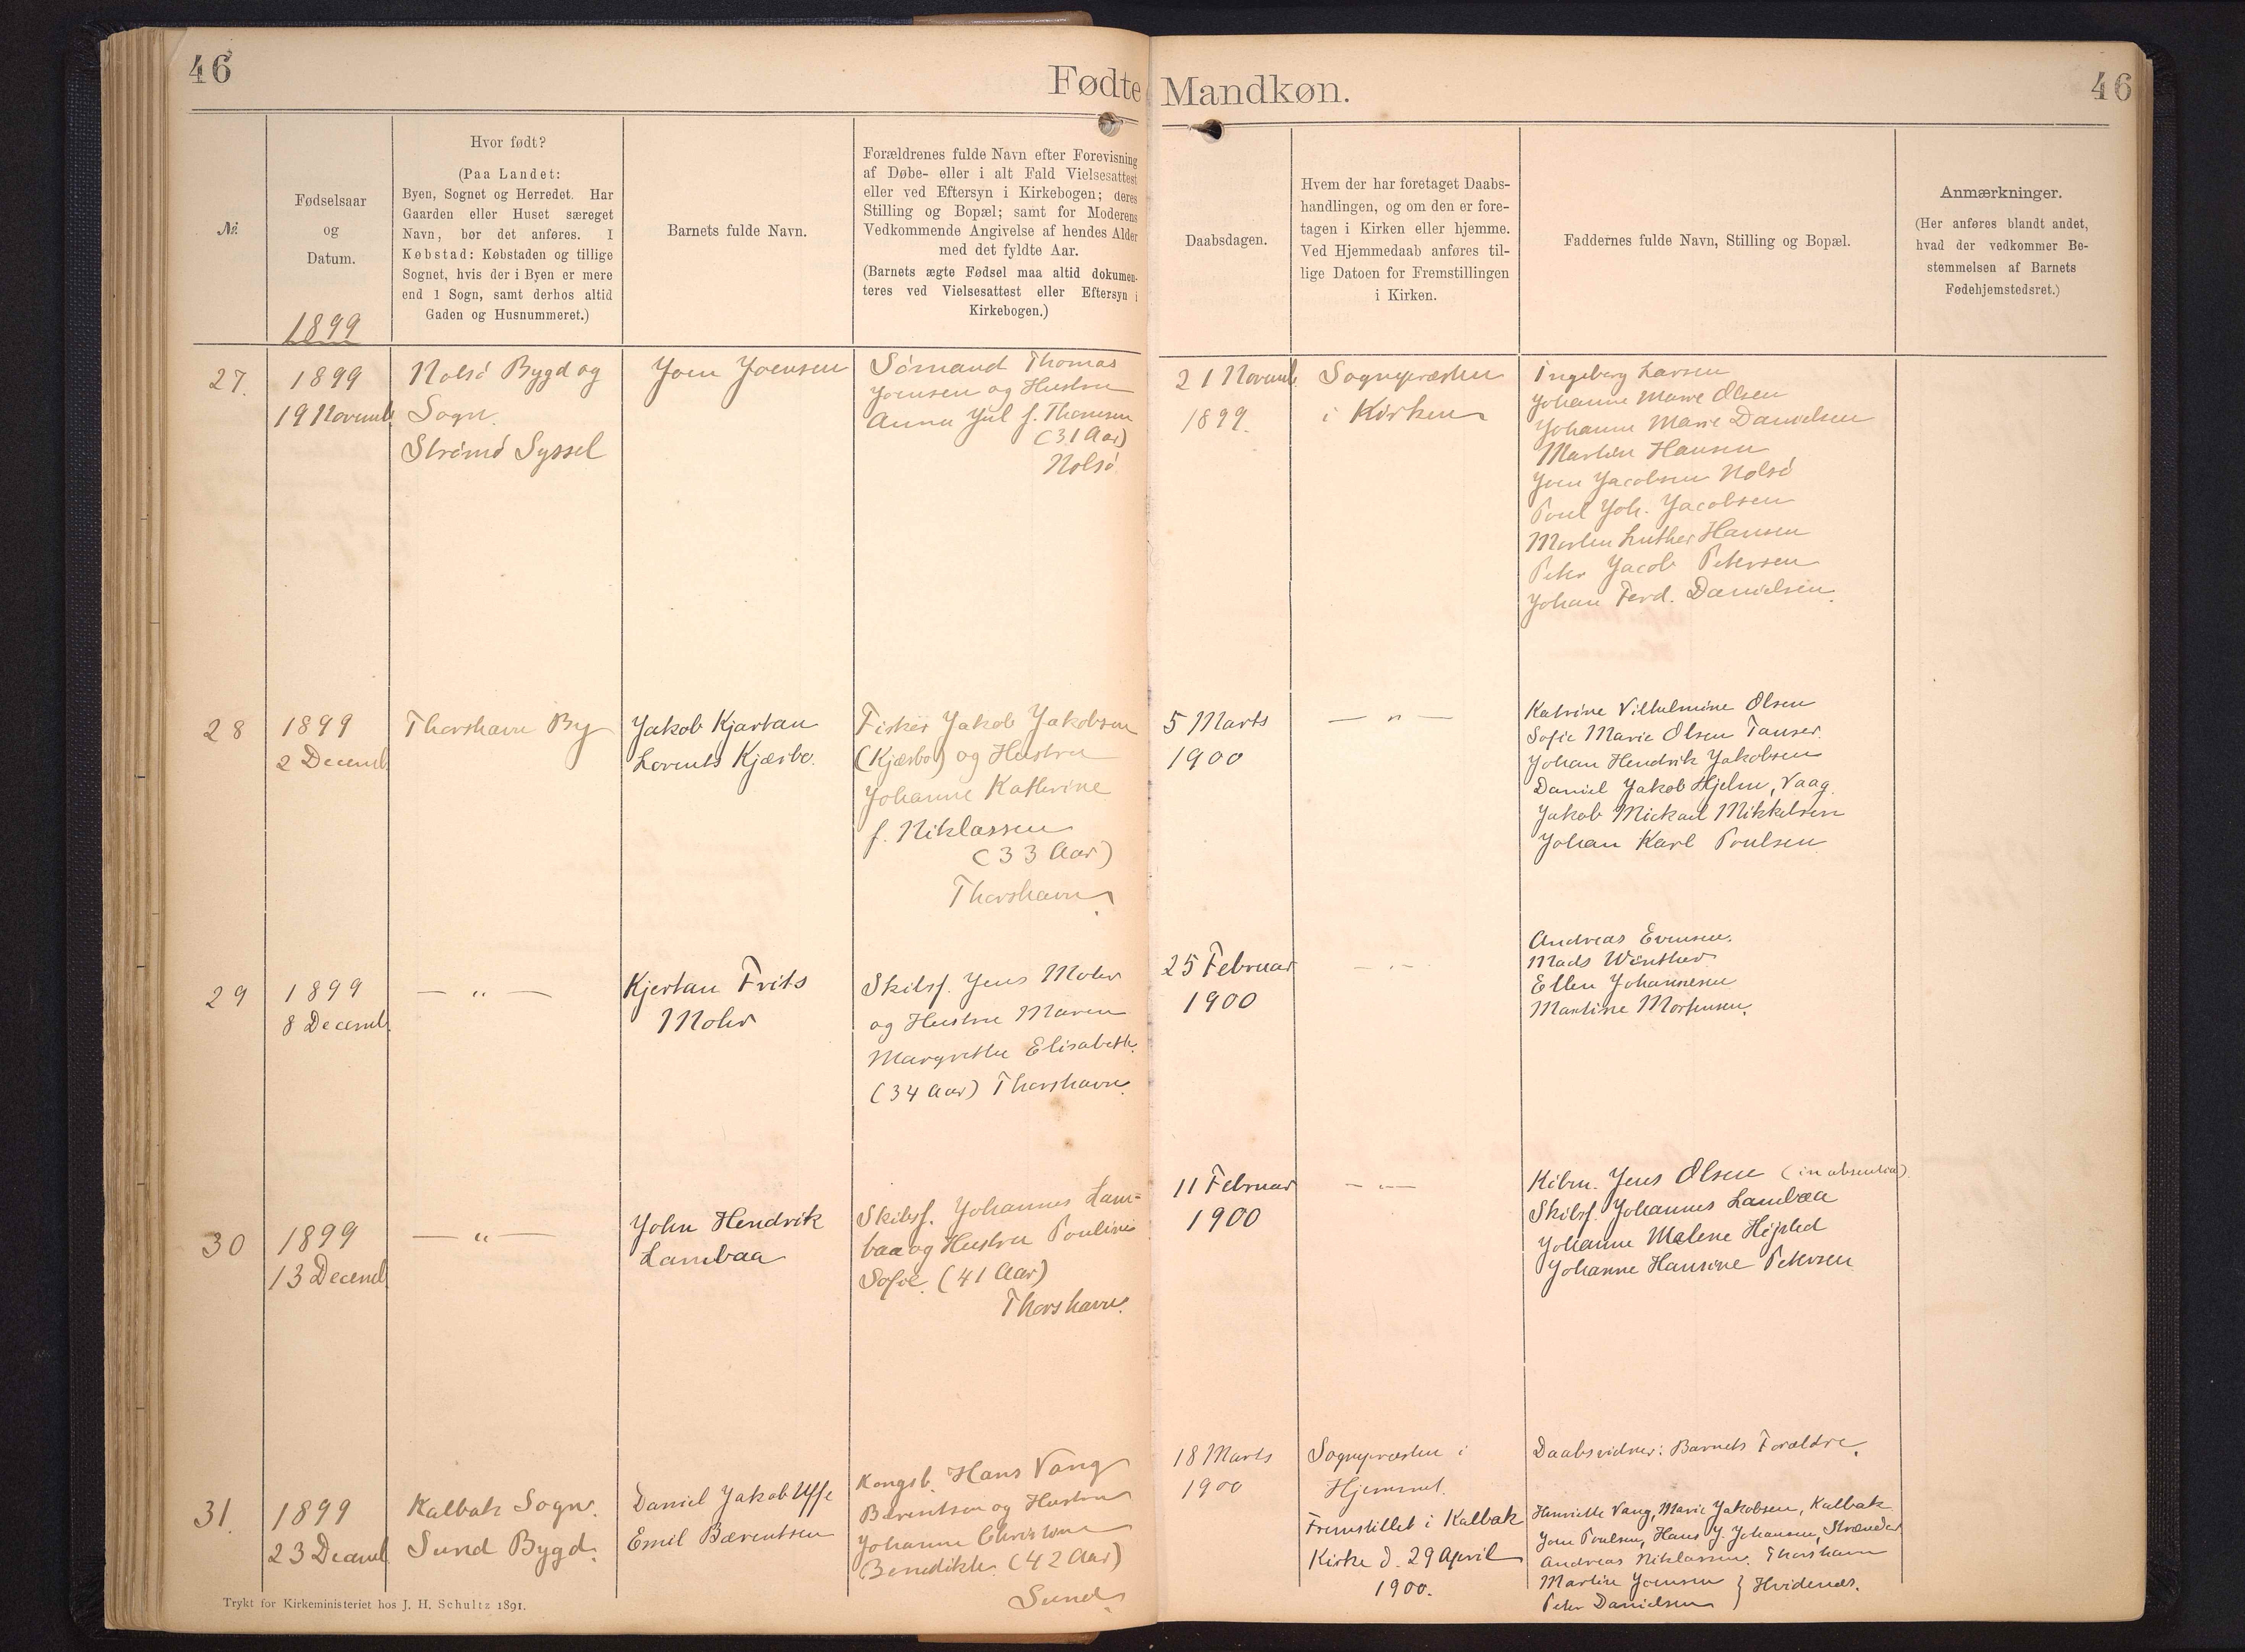 46
Fødte Mandkøn.
46
№
Fødselsaar
og
Datum.
1899
Hvor født?
(Paa Landet:
Byen, Sognet og Herredet. Har
Gaarden eller Huset særeget
Navn, bør det anføres. I
Købstad: Købstaden og tillige
Sognet, hvis der i Byen er mere
end 1 Sogn, samt derhos altid
Gaden og Husnummeret.)
Barnets fulde Navn.
Forældrenes fulde Navn efter Forevisning
af Døbe- eller i alt Fald Vielsesattest
eller ved Eftersyn i Kirkebogen; deres
Stilling og Bopæl; samt for Moderens
Vedkommende Angivelse af hendes Alder
med det fyldte Aar.
(Barnets ægte Fødsel maa altid dokumen-
teres ved Vielsesattest eller Eftersyn i
Kirkebogen.)
Daabsdagen.
Hvem der har foretaget Daabs-
handlingen, og om den er fore-
tagen i Kirken eller hjemme.
Ved Hjemmedaab anføres til-
lige Datoen for Fremstillingen
i Kirken.
Faddernes fulde Navn, Stilling og Bopæl.
Anmærkninger.
(Her anføres blandt andet,
hvad der vedkommer Be-
stemmelsen af Barnets
Fødehjemstedsret.)
27.
1899
19 Novemb.
Nolsö Bygd og
Sogn.
Strömö Syssel
Joen Joensen
Sömand Thomas
Joensen og Hustru
Anna Jul f. Thomsen
(31 Aar)
Nolsö
21 Novemb.
1899.
Sognepræsten
i Kirken
Ingeborg Larsen
Johanne Marie Olsen
Johanne Marie Danielsen
Martin Hansen
Joen Jacobsen Nolsö
Poul Joh. Jacobsen
Morten Luther Hansen
Peter Jacob Petersen
Johan Ferd. Danielsen.
28
1899
2 Decemb.
Thorshavn By
Jakob Kjartan
Lorents Kjærbo.
Fisker Jakob Jakobsen
(Kjærbo) og Hustru
Johanne Kathrine
f. Niklassen
(33 Aar)
Thorshavn.
5 Marts
1900
— " —
Katrine Vilhelmine Olsen
Sofie Marie Olsen
Johan Hendrik Jakobsen
Daniel Jakob Hjelm, Vaag.
Jakob Mickael Mikkelsen
Johan Karl Poulsen
29
1899
8 Decemb.
— " —
Kjertan Frits
Mohr
Skibsf. Jens Mohr
og Hustru Maren
Margrethe Elisabeth.
(34 Aar) Thorshavn.
25 Februar
1900
— " —
Andreas Evensen.
Mads Winther
Ellen Johannesen
Martine Mortensen.
30
1899
13 Decemb.
— " —
John Hendrik
Lambaa
Skibsf. Johannes Lam=
baa og Hustru Pouline
Sofie. (41 Aar)
Thorshavn.
11 Februar
1900
— " —
Köbm. Jens Olsen (in absentia)
Skibsf. Johannes Lambaa
Johanne Malene
Johanne Hansine Petersen
31.
1899
23 Decemb.
Kalbak Sogn.
Sund Bygd.
Daniel Jakob Uffe
Emil Bærentsen
Kongsb. Hans Vang
Bærentsen og Hustru
Johanne Christine
Benedikte. (42 Aar)
Sund.
18 Marts
1900
Sognepræsten i
Hjemmet.
Fremstillet i Kalbak
Kirke d. 29 April
1900.
Daabsvidner: Barnets Forældre.
Henriette Vang, Marie Jakobsen, Kalbak
Joen Poulsen, Hans J. Johansen, Strænder
Andreas Niklassen. Thorshavn
Martin Joensen } Hvidenæs.
Peter Danielsen
Trykt for Kirkeministeriet hos J. H. Schultz 1891.